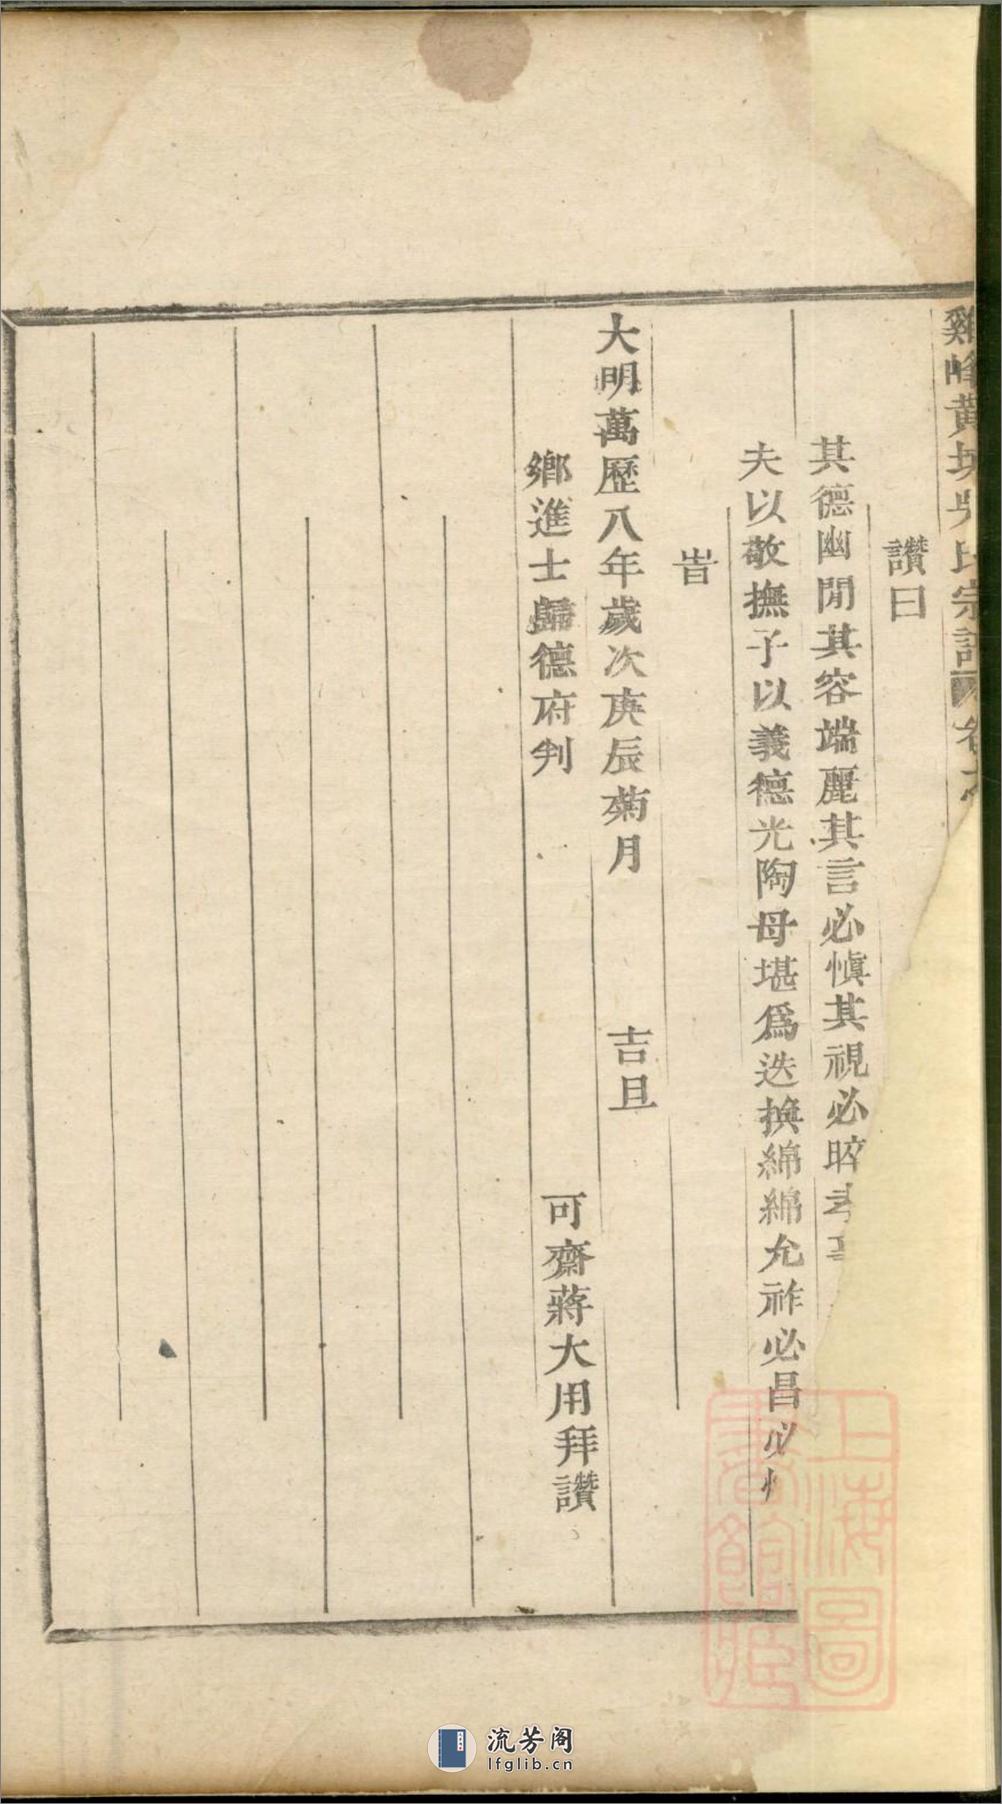 雞峰黃坺吳氏宗譜 卷之
讚曰
其德幽閒其容端麗其言必慎其視必睟
夫以敬撫子以義德光陶母堪爲迭換綿綿允祚必昌必
旹
大明萬歷八年歲次庚辰菊月 吉旦
鄉進士歸德府判 可齋蔣大用拜讚
上海圖
書館藏
流芳阁
lfglib.cn